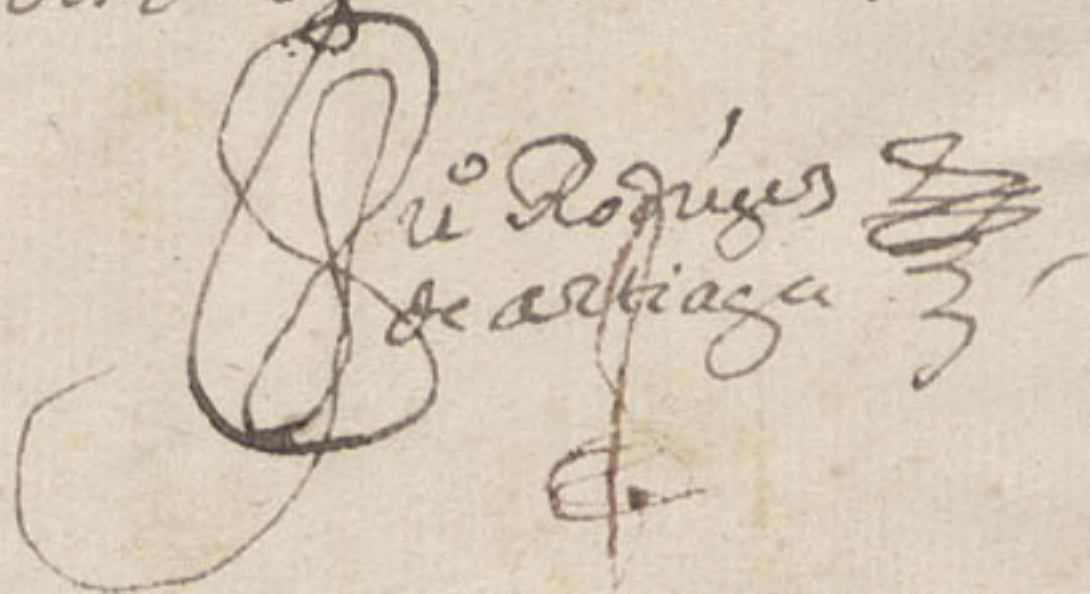 Ju° Rodrígues
de artiaga